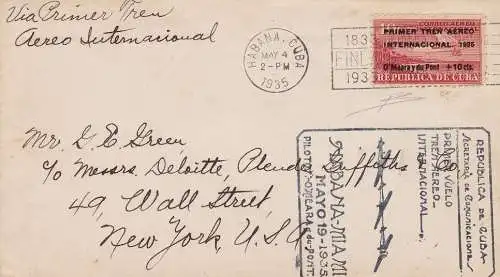 Via Primer Tren
Aereo Internacional
HABANA, CUBA
MAY 4
2-PM
1935
1833
FINL
193
CORREO AEREO
PRIMER TREN AEREO
INTERNACIONAL. 1935
O'Meara y du Pont +10 cts.
REPUBLICA DE CUBA
Mr. G. E. Green
c/o Messrs. Deloitte, Plender, Griffiths & Co.
49, Wall Street,
New York, U.S.A.
REPUBLICA DE CUBA
SECRETARIA DE COMUNICACIONES
PRIMER VUELO
TREN AEREO
INTERNACIONAL
HABANA-MIAMI
MAYO 19-1935
PILOTOS: O'MEARA & du PONT.